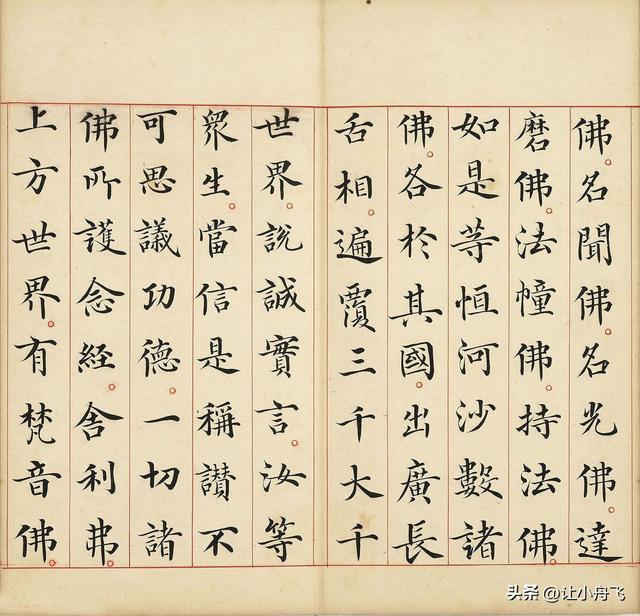 佛。名聞佛。名光佛。達
磨佛。法幢佛。持法佛。
如是等恒河沙數諸
佛。各於其國。出廣長
舌相。遍覆三千大千
世界。說誠實言。汝等
衆生。當信是稱讚不
可思議功德。一切諸
佛所護念經。舍利弗。
上方世界。有梵音佛。
头条 @让小舟飞